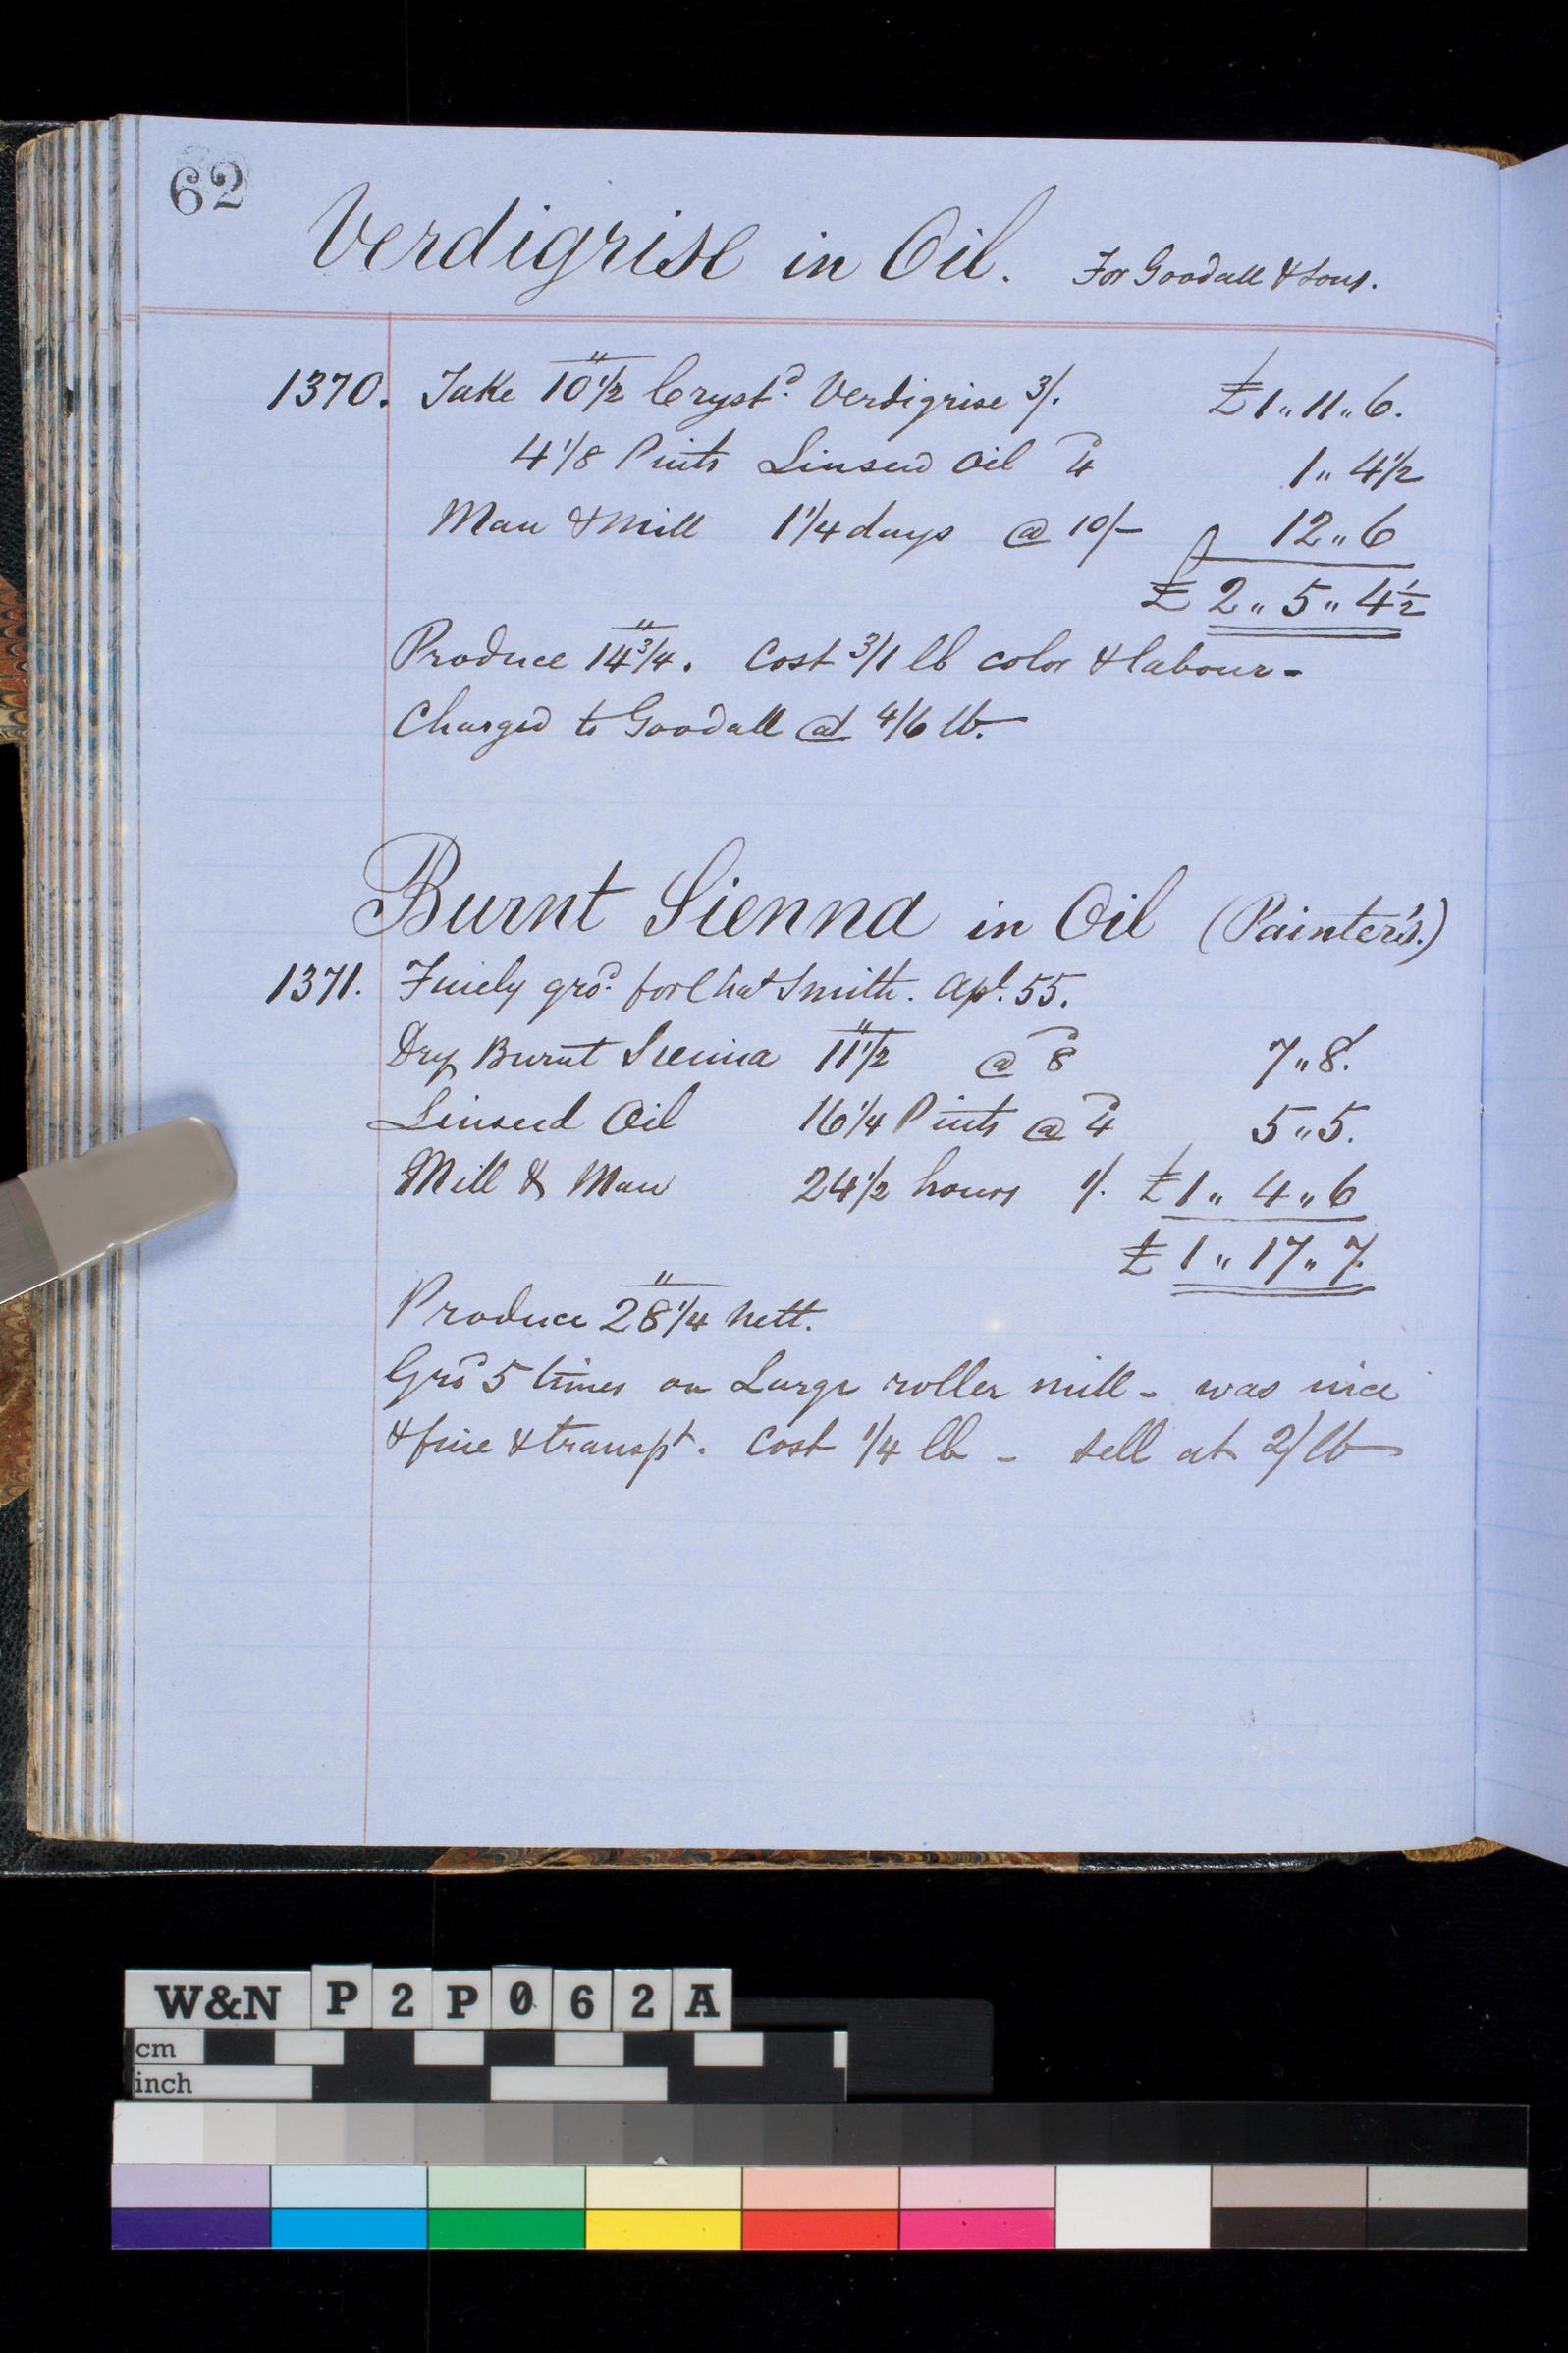 62
Verdigrise in Oil. For Goodall & Sons.
1370. Take 10 1/2" Crystd. Verdigrise 3/. £1 " 11 " 6.
4 1/8 Pints Linseed Oil 4d 1 " 4 1/2
Man & Mill 1 1/4 days @ 10/- 12 " 6
£ 2 " 5 " 4 1/2
Produce 14 3/4". Cost 3/1 lb color & labour -
Charged to Goodall at 4/6 lb.
Burnt Sienna in Oil (Painter's.)
1371. Finely grod. for Chas Smith. Apl. 55.
Dry Burnt Sienna 11 1/2" @ 8d 7 " 8.
Linseed Oil 16 1/4 Pints @ 4d 5 " 5.
Mill & Man 24 1/2 hours 1/. £1 " 4 " 6
£ 1 " 17 " 7.
Produce 28 1/4" nett.
Grod 5 times on Large roller mill - was nice
& fine & transpt. Cost 1/4 lb - sell at 2/ lb
W&N P2P062A
cm
inch